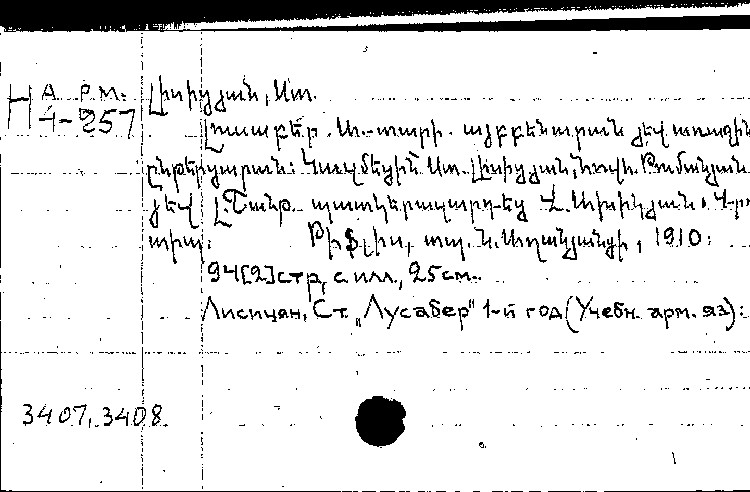 Н АРМ.
4-257
Լիսիցյան, Ստ.
Լուսաբեր. Ա. տարի. այբբենարան յեվ առաջին
ընթերցարան: Կազմեցին Ստ. Լիսիցյան, Հովհ. Թումանյան
յեվ Լ. Շանթ. պատկերազարդեց
տիպ: Թիֆլիս, տպ. Ն. Աղանյանցի, 1910:
94[2]стр, с илл., 25см.
Лисицян, Ст. „Лусабер" 1-й год (Учебн. арм. яз):
3407, 3408